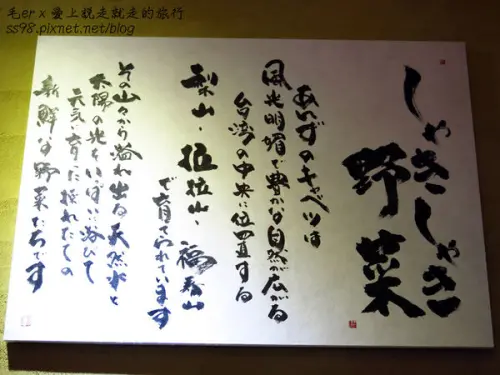 毛er x 愛上說走就走的旅行
ss98.pixnet.net/blog
しゃきしゃき
野菜
あいずのキャベツは
風光明媚で豊かな自然が広がる
台湾の中央に位置する
梨山・拉拉山・福寿山
で育てられています
その山々から溢れ出る天然水と
太陽の光をいっぱい浴びて
元気に育った採れたての
新鮮な野菜たちです